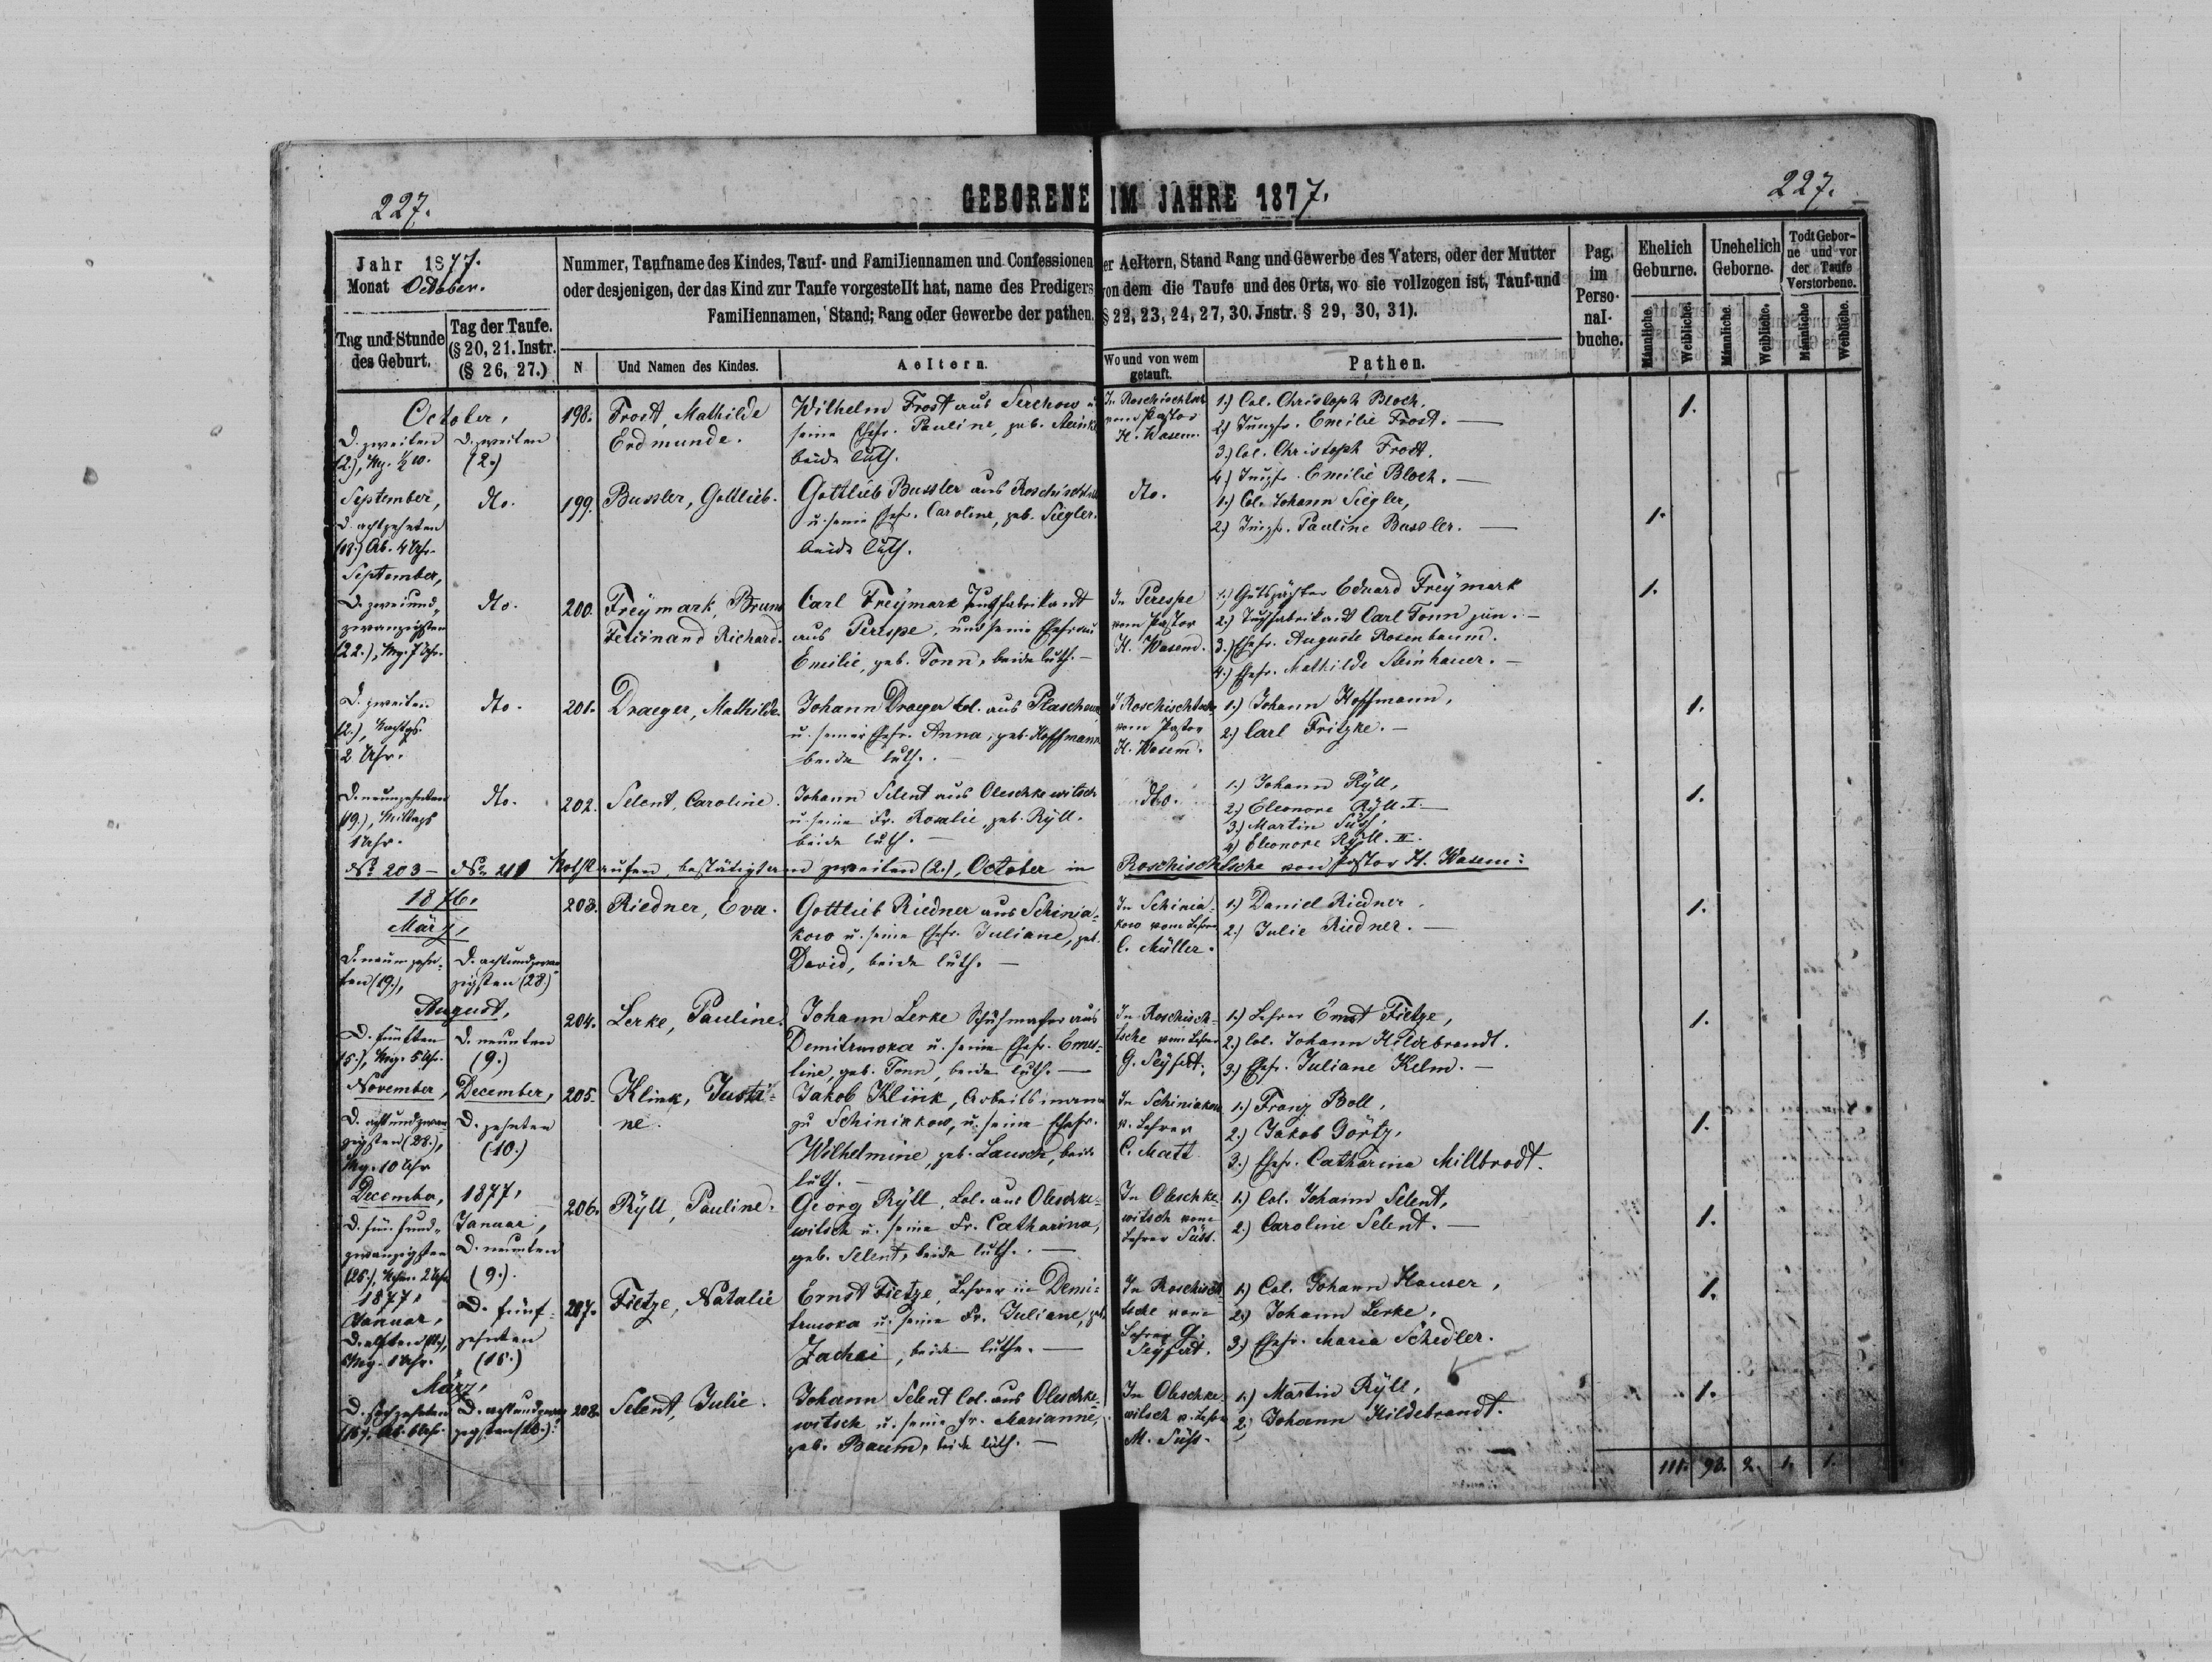 227.
GEBORENE IM JAHRE 1877.
227.
Jahr 1877.
Monat October.
Tag und Stunde
des Geburt.
Tag der Taufe.
(§ 20, 21. Instr.
(§ 26, 27.)
Nummer, Taufname des Kindes, Tauf- und Familiennamen und Confessionen der Aeltern, Stand Rang und Gewerbe des Vaters, oder der Mutter
oder desjenigen, der das Kind zur Taufe vorgestellt hat, name des Predigers von dem die Taufe und des Orts, wo sie vollzogen ist, Tauf-und
Familiennamen, Stand; Rang oder Gewerbe der pathen. § 22, 23, 24, 27, 30. Jnstr. § 29, 30, 31).
N
Und Namen des Kindes.
Aeltern.
Wo und von wem
getauft.
Pathen.
Pag.
im
Perso-
nal-
buche.
Ehelich
Geburne.
Unehelich
Geborne.
Todt Gebor-
ne und vor
der Taufe
Verstorbene.
Männliche.
Weibliche.
Männliche.
Weibliche.
Männliche
Weibliche.
October,
D. zweiten
(2.), Mg. ½ 10.
D. zweiten
(2.)
198.
Frost, Mathilde
Erdmunde.
Wilhelm Frost aus Serchow u.
seine Ehefr. Pauline, geb. Steinke
beide luth.
In Roschischtsche
vom Pastor
H. Wasem.
1.) Col. Christoph Bloch.
2.) Jungfr. Emilie Frost. —
3.) Col. Christoph Frost.
4.) Jungfr. Emilie Bloch. —
1.
September,
D. achtzehnten
(18.) Ab. 4 Uhr.
dto.
199.
Bussler, Gottlieb.
Gottlieb Bussler aus Roschischtsche
u. seine Ehefr. Caroline, geb. Siegler.
beide luth.
dto.
1.) Col. Johann Siegler,
2.) Jungfr. Pauline Bussler. —
1.
September,
D. zweiund-
zwanzigsten
(22.), Mg. 7 Uhr.
dto.
200.
Freymark, Bruno
Ferdinand Richard.
Carl Freymark Tuchfabrikant
aus Perespe, und seine Ehefrau
Emilie, geb. Tonn, beide luth. —
In Perespe
vom Pastor
H. Wasem.
1.) Gutspächter Eduard Freymark
2.) Tuchfabrikant Carl Tonn jun. —
3.) Ehefr. Auguste Rosenbaum.
4.) Ehefr. Mathilde Steinhauer. —
1.
D. zweiten
(2.), Nachts.
2 Uhr.
dto.
201.
Draeger, Mathilde.
Johann Draeger Col. aus Plaschewe
u. seine Ehefr. Anna, geb. Hoffmann
beide luth. —
J Roschischtsche
vom Pastor
H. Wasem.
1.) Johann Hoffmann,
2.) Carl Fritzke. —
1.
D. neunzehnten
(19.), Mittags
1 Uhr.
dto.
202.
Selent, Caroline.
Johann Selent aus Oleschkewitsch
u. seine Fr. Rosalie, geb. Ryll.
beide luth. —
dto.
1.) Johann Ryll,
2.) Eleonore Ryll. I. —
3.) Martin Süss,
4.) Eleonore Ryll. II.
1.
No 203 — No 211 Nothtaufen, bestätigt am zweiten (2.), October in Roschischtsche von Pastor H. Wasem:
1876.
März,
D. neunzehn-
ten (19.),
D. achtundzwan-
zigsten (28.)
203.
Riedner, Eva.
Gottlieb Riedner aus Schinja-
kow u. seine Ehefr. Juliane, geb.
David, beide luth. —
In Schinia-
kow vom Lehrer
C. Müller.
1.) Daniel Riedner.
2.) Julie Riedner. —
1.
August,
D. fünften
(5.), Mg. 5 Uhr.
D. neunten
(9.)
204.
Lerke, Pauline.
Johann Lerke Schuhmacher aus
Demitruwka u. seine Ehefr. Ernes-
tine, geb. Tonn, beide luth. —
In Roschisch-
tsche vom Lehrer
G. Seyfert.
1.) Lehrer Ernst Fietze,
2.) Col. Johann Hildebrandt.
3.) Ehefr. Juliane Kelm. —
1.
November,
D. achtundzwan-
zigsten (28.),
Mg. 10 Uhr
December,
D. zehnten
(10.)
205.
Klink, Justi-
ne.
Jakob Klink, Arbeitsmann
zu Schiniakow, u. seine Ehefr.
Wilhelmine, geb. Lausch, beide
luth. —
In Schiniakow
v. Lehrer
C. Matt
1.) Franz Boll,
2.) Jakob Görtz,
3.) Ehefr. Catharina Millbrodt.
1.
December,
D. fünfund-
zwanzigsten
(25.), Nchm. 2 Uhr
1877,
Januar,
D. neunten
(9.).
206.
Ryll, Pauline.
Georg Ryll, Col. aus Oleschke-
witsch u. seine Fr. Catharina,
geb. Selent, beide luth. —
In Oleschke-
witsch vom
Lehrer Süss.
1.) Col. Johann Selent,
2.) Caroline Selent. —
1.
1877,
Januar,
D. elften (11.),
Mg. 1 Uhr.
D. fünf-
zehnten
(15.)
207.
Fietze, Natalie
Ernst Fietze, Lehrer in Demi-
truwka u. seine Fr. Juliane, geb.
Zachai, beide luth. —
In Roschisch-
tsche vom
Lehrer G.
Seyfert.
1.) Col. Johann Hauser,
2.) Johann Lerke,
3.) Ehefr. Maria Schedler.
1.
März,
D. sechzehnten
(16.), Ab. 6 Uhr.
D. achtundzwan-
zigsten (28.).
208.
Selent, Julie.
Johann Selent Col. aus Oleschke-
witsch u. seine Fr. Marianne,
geb. Baum, beide luth. —
In Oleschke-
witsch v. Lehrer
M. Süss.
1.) Martin Ryll,
2.) Johann Hildebrandt.
1.
111. 98. 2. 1. 1.